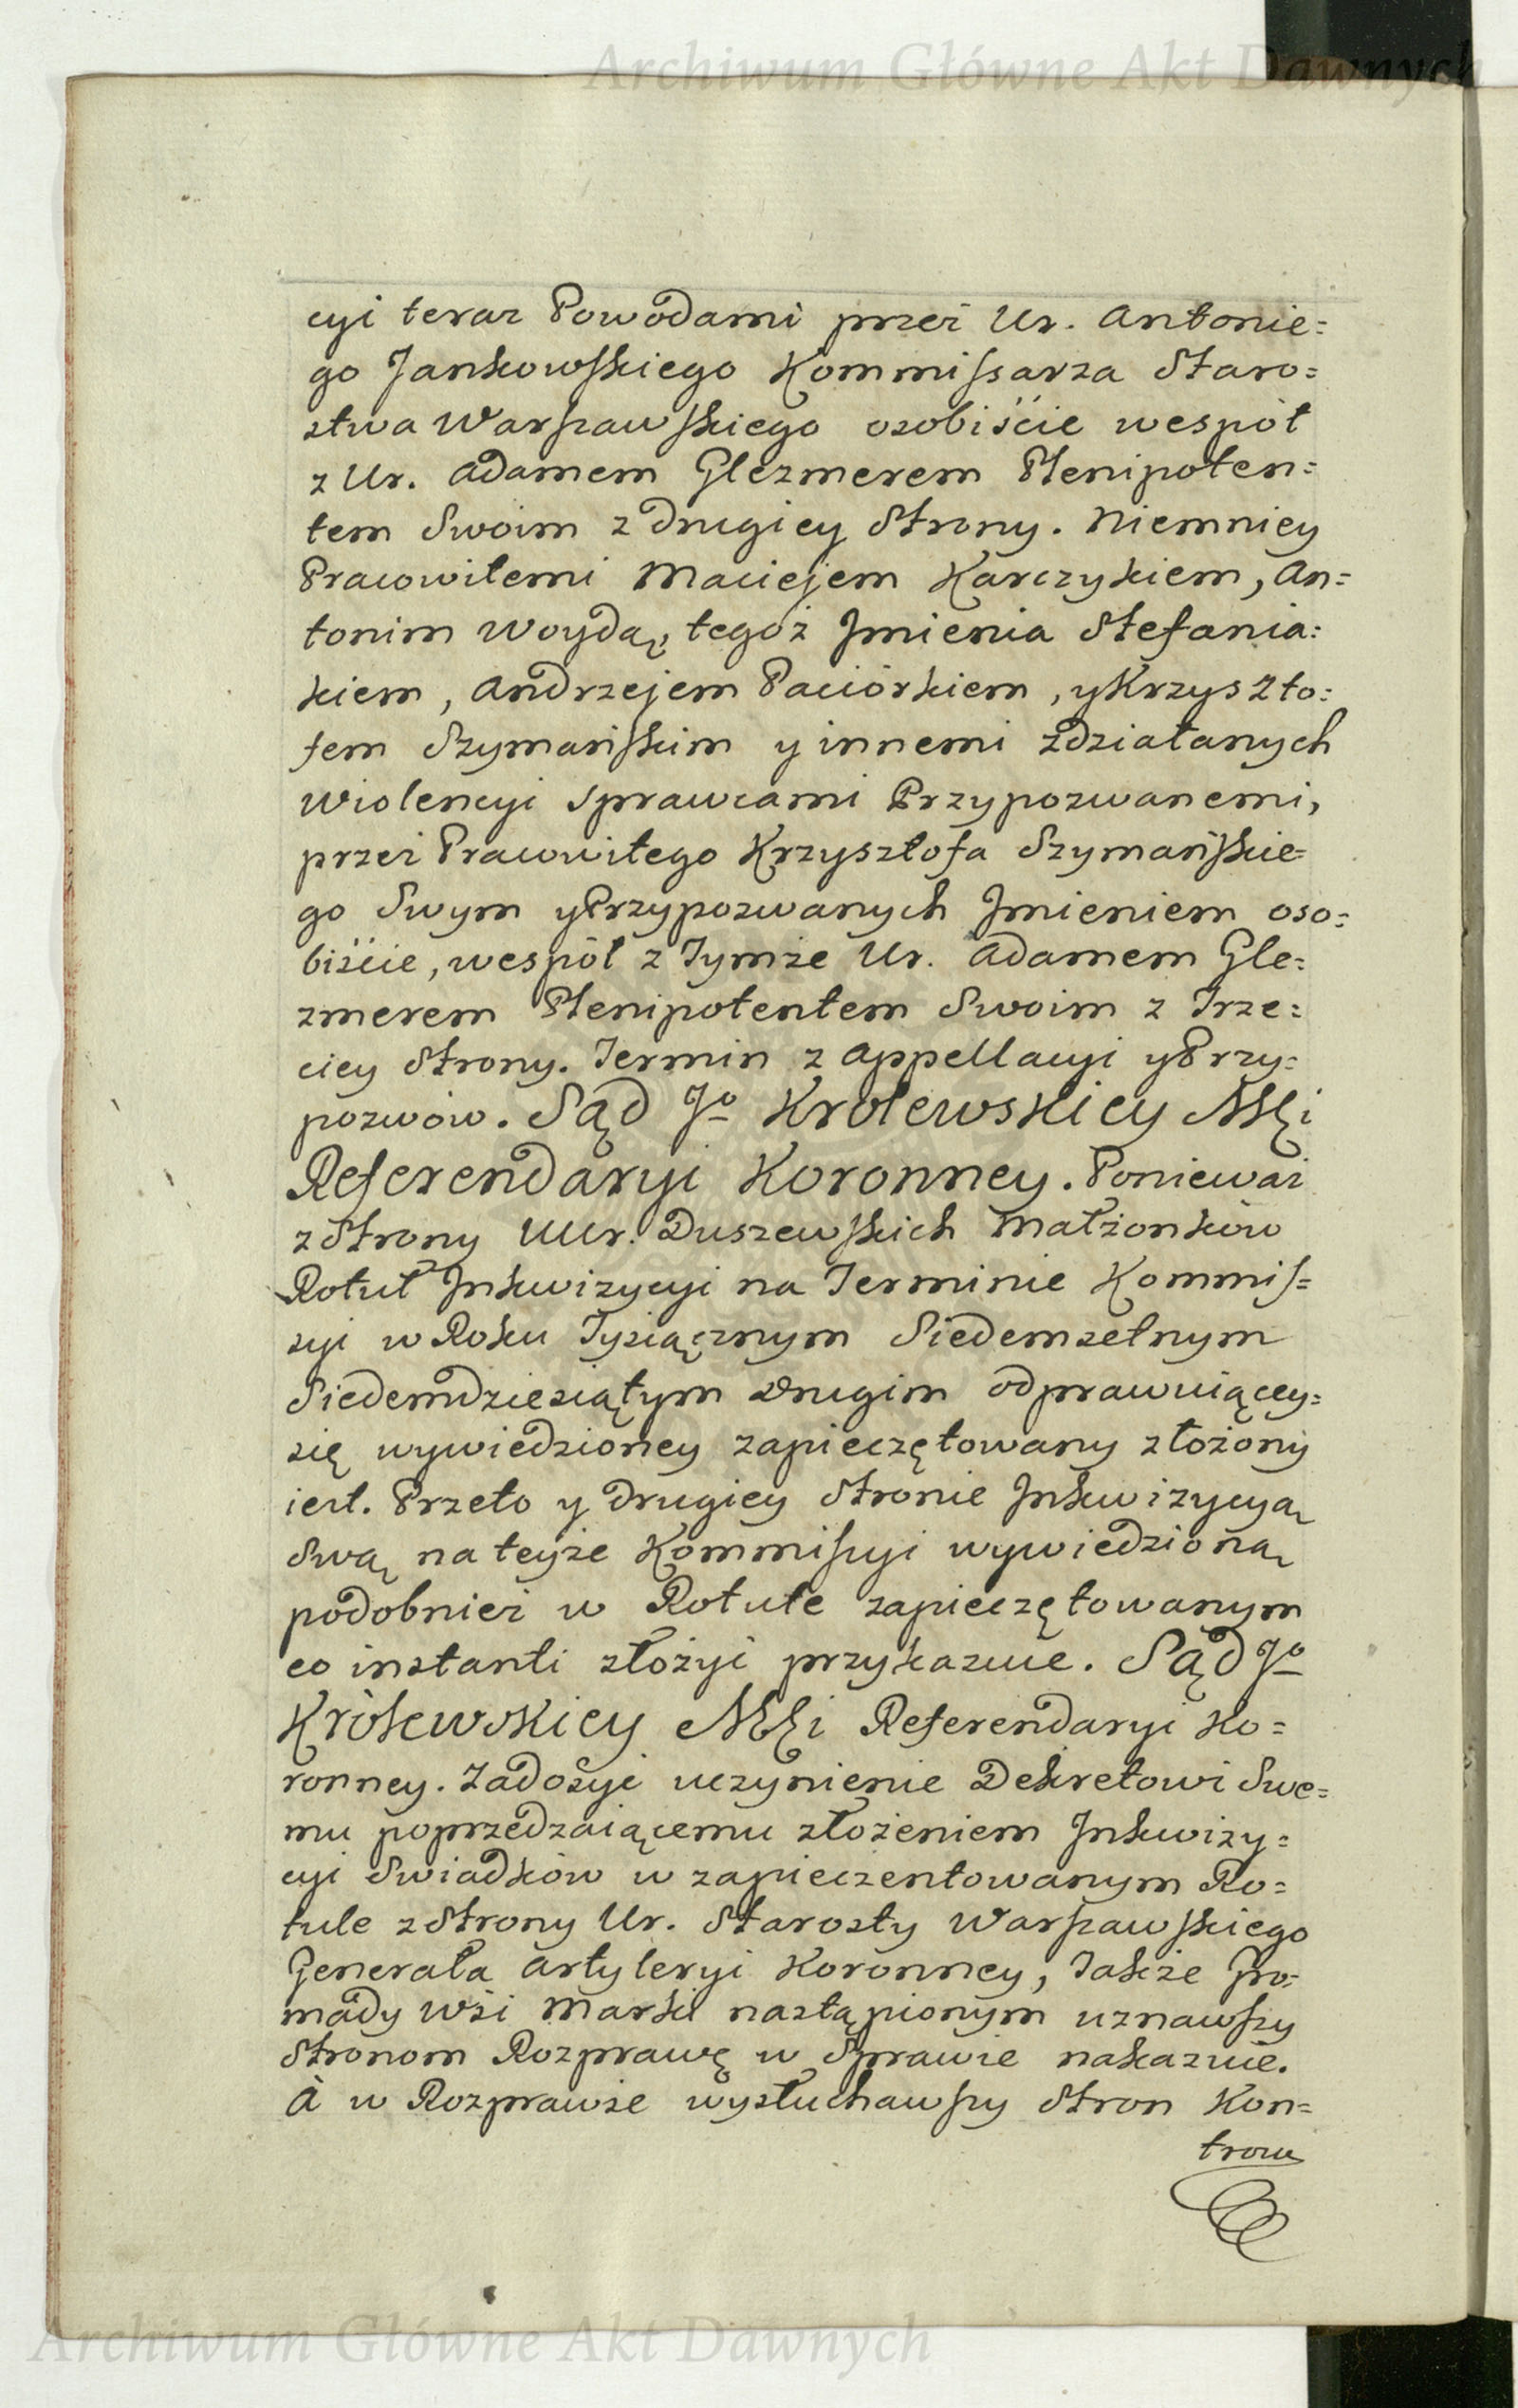 Archiwum Główne Akt Dawnych
cyi teraz Powodami przez Ur. Antonie=
go Jankowskiego Kommissarza Staro=
stwa Warszawskiego osobiście wespół
z Ur. Adamem Glezmerem Plenipoten=
tem Swoim z drugiey Strony. Niemniey
Pracowitemi Maciejem Karczykiem, An=
tonim Woydą, tegoż Imienia Stefania=
kiem, Andrzejem Paciorkiem, y Krzyszto=
fem Szymańskim y innemi zdziałanych
Wiolencyi Sprawcami Przypozwanemi,
przez Pracowitego Krzysztofa Szymańskie=
go Swym y Przypozwanych Imieniem oso=
biście, wespół z Tymże Ur. Adamem Gle=
zmerem Plenipotentem Swoim z Trze=
ciey Strony. Termin z Appellacyi y Przy=
pozwów. Sąd Jo Krolewskiey Mći
Referendaryi Koronney. Ponieważ
z Strony UUr. Duszewskich Małżonków
Rotuł Inkwizycyi na Terminie Kommis=
syi w Roku Tysiącznym Siedemsetnym
Siedemdziesiątym Drugim odprawuiącey=
się wywiedzioney zapieczętowany złożony
iest. Przeto y drugiey Stronie Inkwizycyą
Swą na teyże Kommissyi wywiedzioną
podobnież w Rotule zapieczętowanym
eo instanti złożyć przykazuie. Sąd Jo
Królewskiey Mći Referendaryi Ko=
ronney. Zadosyć uczynienie Dekretowi Swe=
mu poprzedzaiącemu złożeniem Inkwizy=
cyi Swiadków w zapieczentowanym Ro=
tule z Strony Ur. Starosty Warszawskiego
Generała Artyleryi Koronney, Także Gro=
mady Wsi Marki nastąpionym uznawszy
Stronom Rozprawę w Sprawie nakazuie.
A w Rozprawie wysłuchawszy Stron Kon=
trow
Archiwum Główne Akt Dawnych